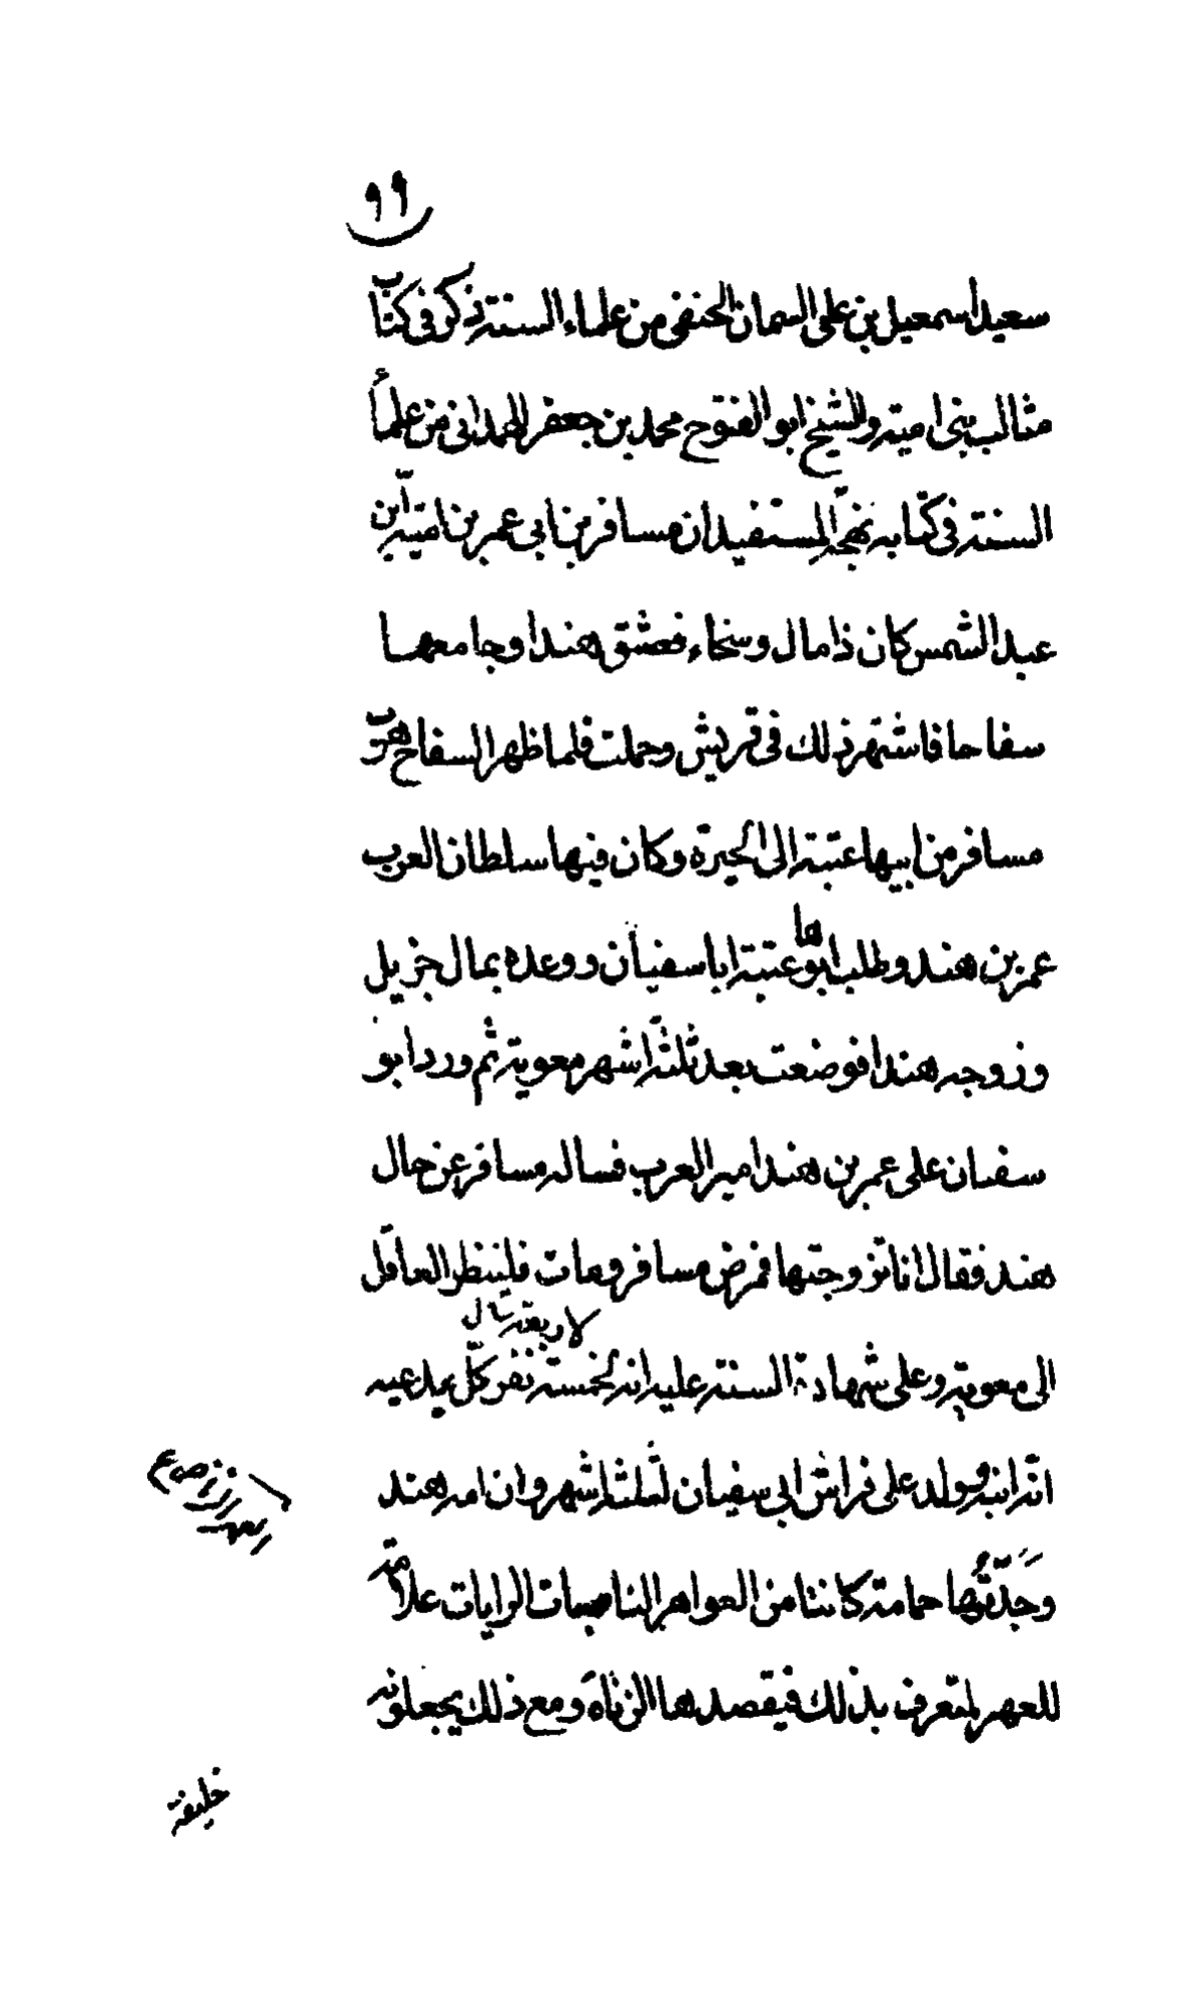 ٩٩
سعيد اسمعيل بن على السمان الحنفى من علماء السنة ذكر فى كتاب
مثالب بنى امية والشيخ ابو الفتوح محمد بن جعفر الهمدانى من علمأ
السنة فى كتابه بهجة المستفيد ان مسافر بن ابى عمر بن امية بن
عبد الشمس كان ذا مال وسخاء فعشق هندا وجامعها
سفاحا فاشتهر ذلك فى قريش وحملت فلما ظهر السفاح هرب
مسافر من ابيها عتبة الى الحيرة وكان فيها سلطان العرب
عمر بن هند وطلب ابوها عتبة ابا سفيان ووعده بمال جزيل
وزوجه هندا فوضعت بعد ثلثة اشهر معوية ثم ورد ابو
سفيان على عمر بن هند امير العرب فساله مسافر عن حال
هند فقال انا تزوجتها فمرض مسافر ومات فلينظر العاقل
لاربعة
الى معوية وعلى شهادة السنة عليه انه لخمسة نفر كل يدعيه
انه ابنه وولد على فراش ابى سفيان لثلثة اشهر وان امه هند
وجدتها حمامة كانتا من العواهر الناصبات الرايات علامة
للعهر لتعرف بذلك فيقصدها الزناة ومع ذلك يجعلونه
العهر الزنا
خليفة